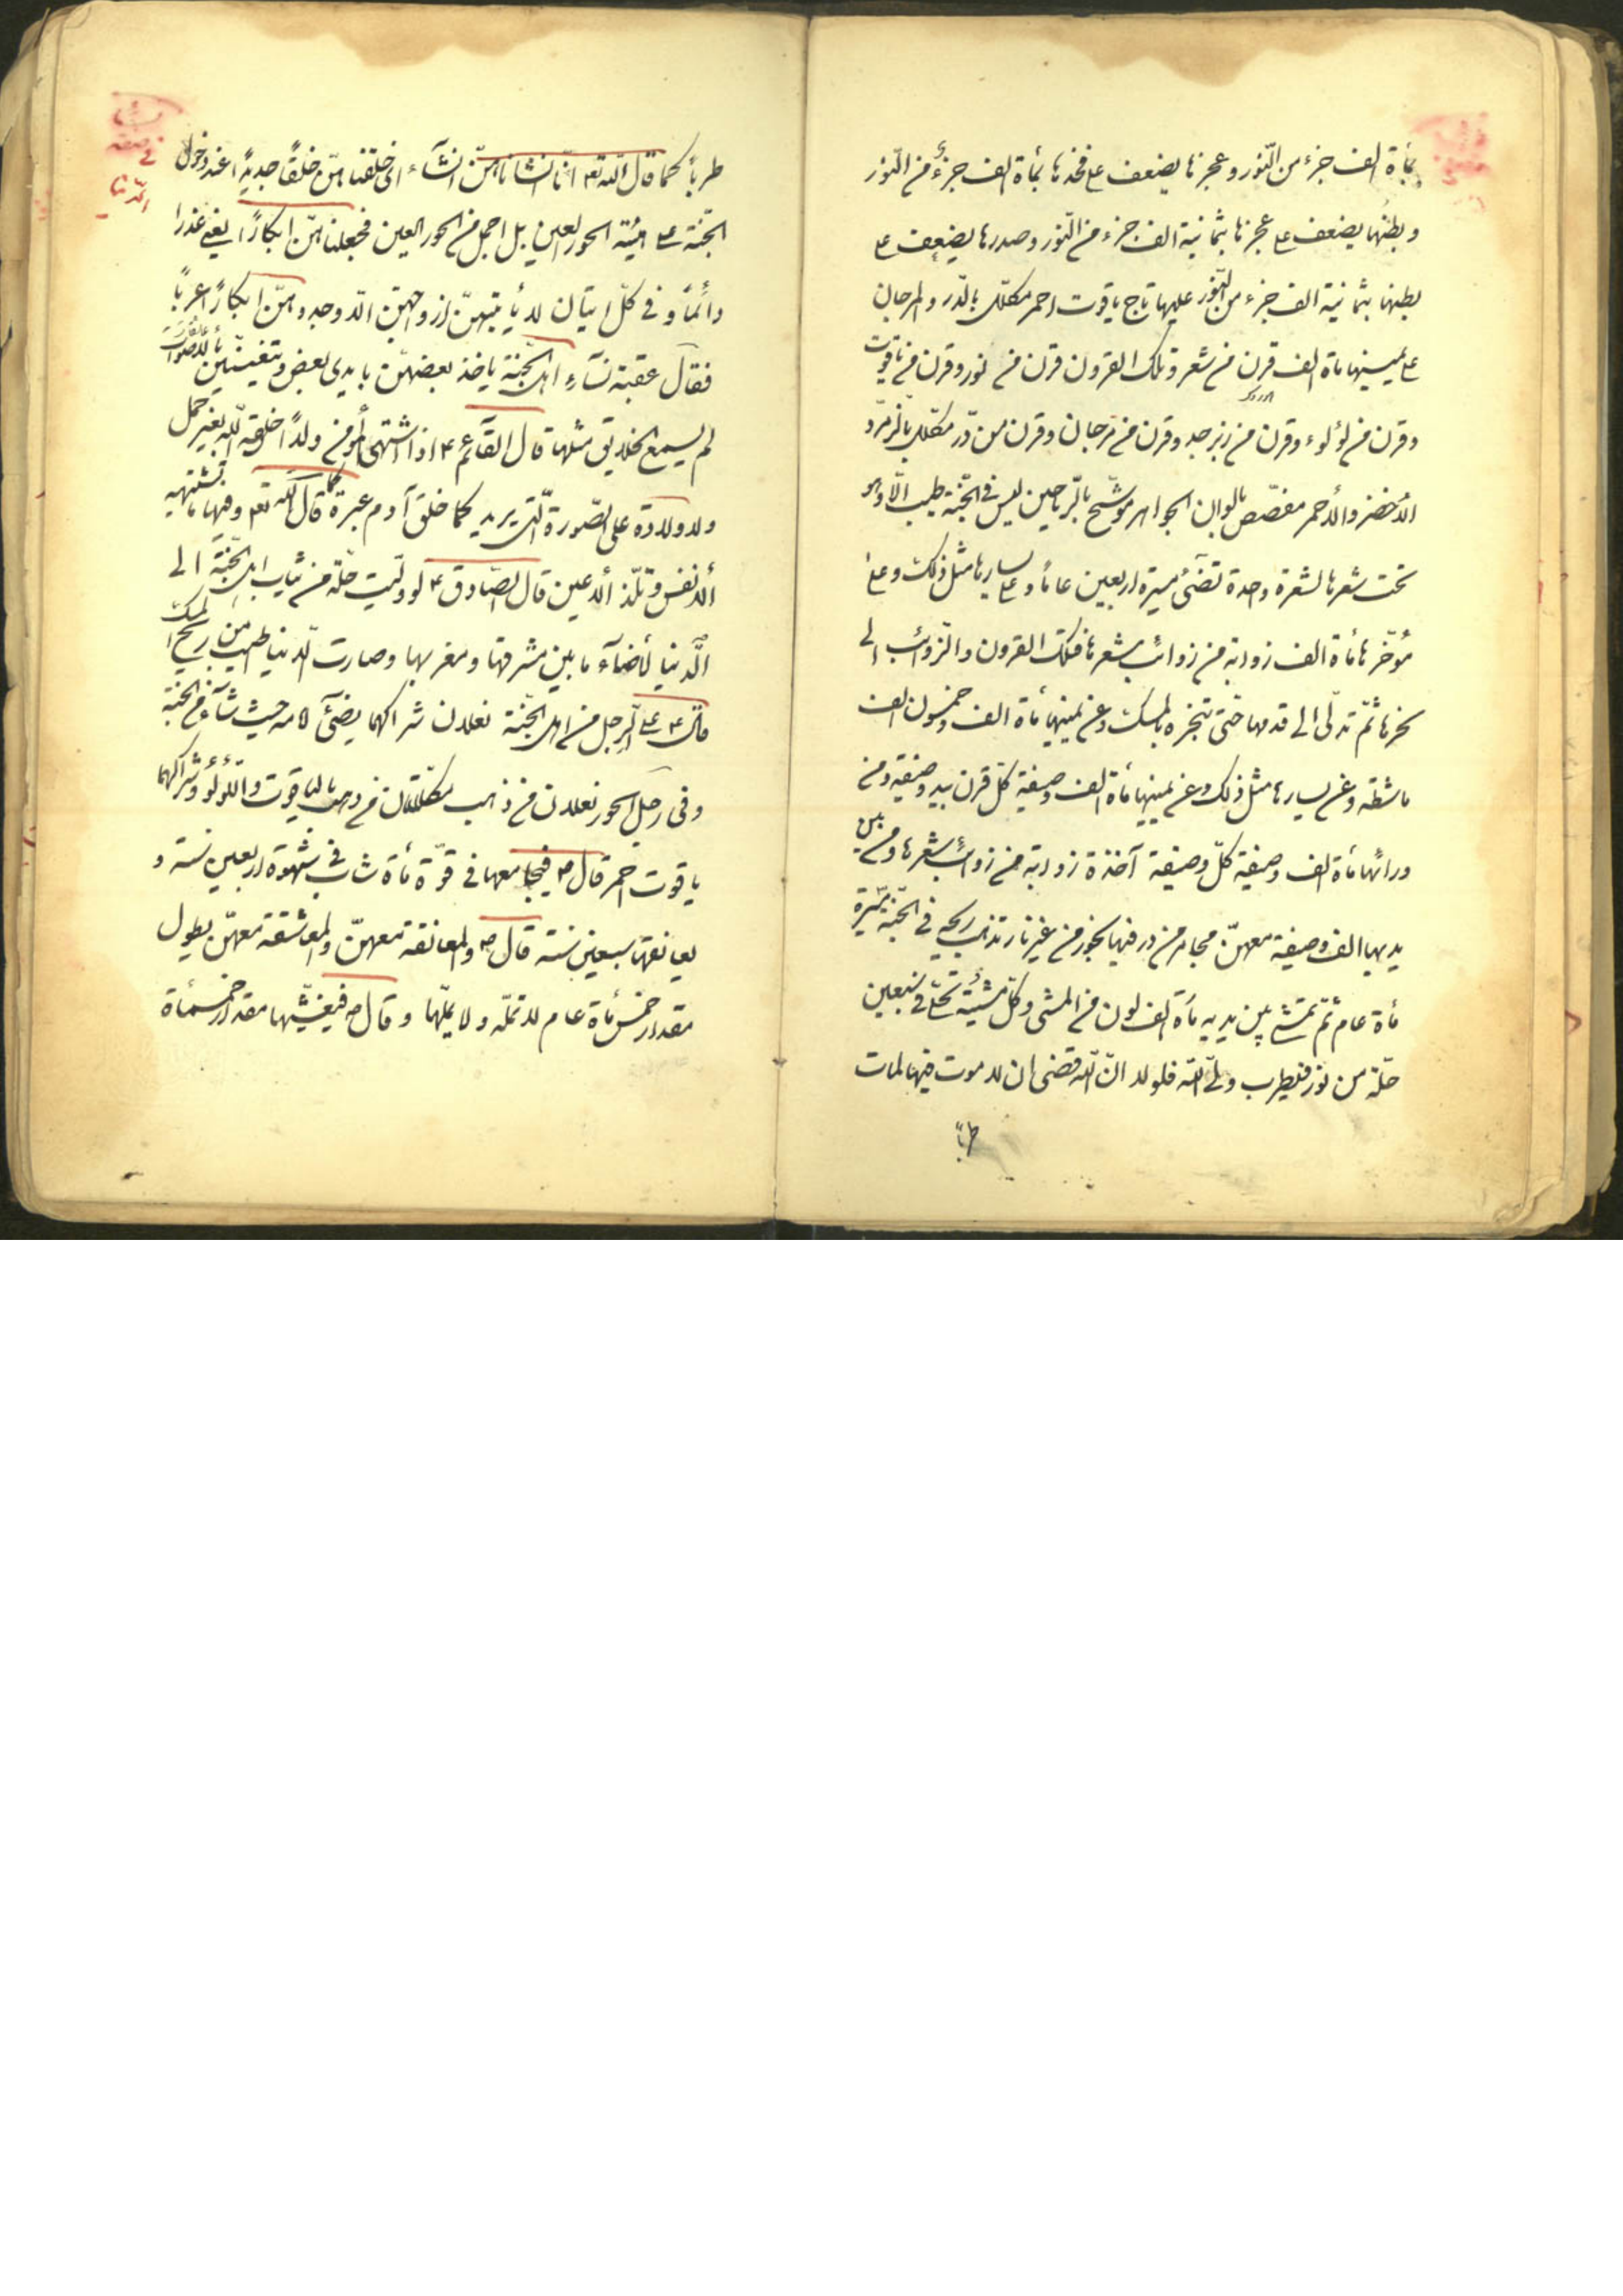 بمأة الف جزء من النّور وعجزها يضعف على فخذها بمأة الف جزء من النّور
وبطنها يضعف على عجزها بثمانية الف جزء من النّور وصدرها يضعف على
بطنها بثمانية الف جزء من النّور عليها تاج ياقوت احمر مكلّل بالدّر والمرجان
على يمينها مأة الف قرن من شعر وتلك القرون قرن من نور وقرن من ياقوت
وقرن من لؤلوء وقرن من زبرجد وقرن من مرجان وقرن من درّ مكلّل بالزمرّد
الأخضر والأحمر مفصّص بالوان الجواهر موشّح بالرّياحين ليس في الجنّة طيب الّا وهو
تحت شعرها لشعرة واحدة تضئ مسيرة اربعين عامًا وعلى يسارها مثل ذلك وعلى
مؤخّرها مأة الف زوابة من زوائب شعرها فتلك القرون والزّوائب الى
نحرها ثمّ تدلّى الى قدمها حتّى تنجرّه بالمسك وعن يمينها مأة الف وخمسون الف
ماشطة وعن يسارها مثل ذلك وعن يمينها مأة الف وصيفة كلّ قرن بيد وصيفة ومن
ورائها مأة الف وصيفة كلّ وصيفة آخذة زوابة من زوائب شعرها ومن بين
يديها الف وصيفة معهنّ مجامر من در فيها بخور من غير نار تذهب ريحه في الجنّة مسيرة
مأة عام ثمّ تمشى بين يديه مأة الف لون من المشى وكلّ مشية تحلّى في سبعين
حلّة من نور فيطرب ولىّ اللّه فلولا انّ اللّه قضى ان لا موت فيها لمات
طربًا
في صفة
طربًا كما قال اللّه تع انّا انشاناهنّ انشآء اى خلقناهنّ خلقًا جديدًا عند دخول
الجنّة على هيئة الحور العين بل اجمل من الحور العين فجعلناهنّ ابكارًا يعنى عذرا
دائمًا وفى كلّ اتيان لا يأتيهنّ ازواجهنّ الّا وجدوهنّ ابكارًا عربًا
فقال عقبة نسآء اهل الجنّة ياخذ بعضهنّ بايدى بعض وتغنّين بالأصوات
لم يسمع الخلايق مثلها قال القآئم ع اذا اشتهى المؤمن ولدًا خلقه اللّه بغير حمل
ولا ولادة على الصّورة الّتى يريد كما خلق آدم عبرة كما قال اللّه تع وفيها ما تشتهيه
الأنفس وتلذّ الأعين قال الصّادق ع لو ولّيت حلّة من ثياب اهل الجنّة الى
الدّنيا لأضآء ما بين مشرقها ومغربها وصارت الدّنيا اطيب من ريح المسك
قال ع على الرّجل من اهل الجنّة نعلان شراكهما يضئ امامه حيث شآء من الجنّة
وفى رجل الحور نعلان من ذهب مكلّلتان من بالياقوت واللّؤلؤ وشراكهما
ياقوت احمر قال ص فيجامعها في قوّة مأة شاب في شهوة اربعين سنة و
يعانقها سبعين سنة قال ص والمعانقة معهنّ والمعاشقة معهنّ بطول
مقدار خمس مأة عام لا تملّه ولا يملّها وقال ص فيغشّيها مقدار خمسمأة